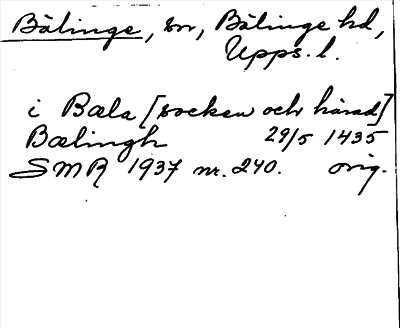 Bälinge, sn, Bälinge hd,
Upps. l.
i Bæla [socken och härad]
Bælingh 29/5 1435
SMR 1937 nr. 240. orig.